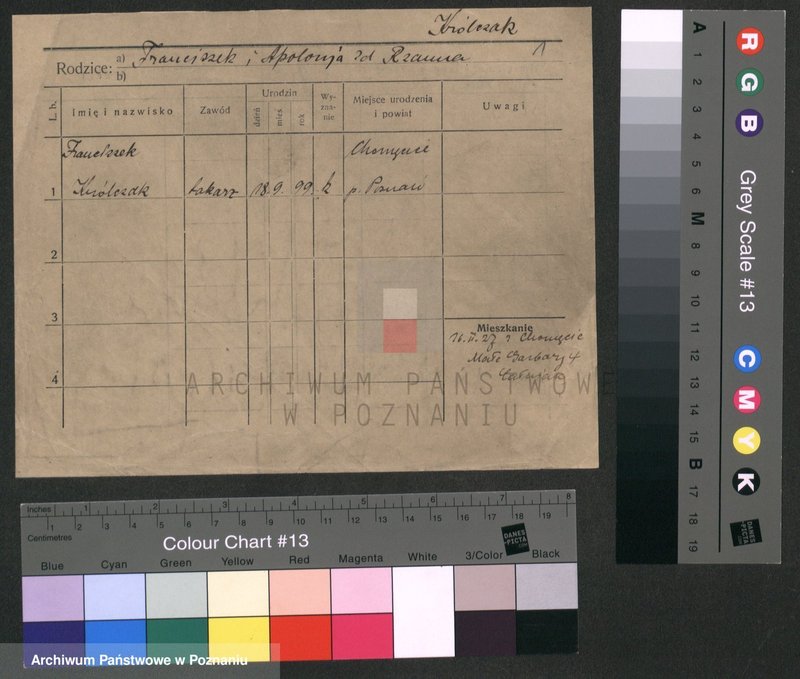 Królczak
1
Rodzice: a) Franciszek i Apolonja zd Rzanna
b)
L. b. Imię i nazwisko Zawód Urodzin dzień mies. rok Wy-zna-nie Miejsce urodzenia i powiat Uwagi
Franciszek Chomęcice
1 Królczak tokarz 18. 9. 99. k p. Poznań
2
3
Mieszkanie
16.II.27 z Chomęcic
Małe Garbary 4
4
ARCHIWUM PAŃSTWOWE
W POZNANIU
Inches 1 2 3 4 5 6 7 8
Centimetres 1 2 3 4 5 6 7 8 9 10 11 12 13 14 15 16 17 18 19
Colour Chart #13
DANES-PICTA.COM
Blue Cyan Green Yellow Red Magenta White 3/Color Black
Archiwum Państwowe w Poznaniu
A 1 2 3 4 5 6 M 8 9 10 11 12 13 14 15 B 17 18 19
R G B
Grey Scale #13
C M Y K
DANES-PICTA.COM